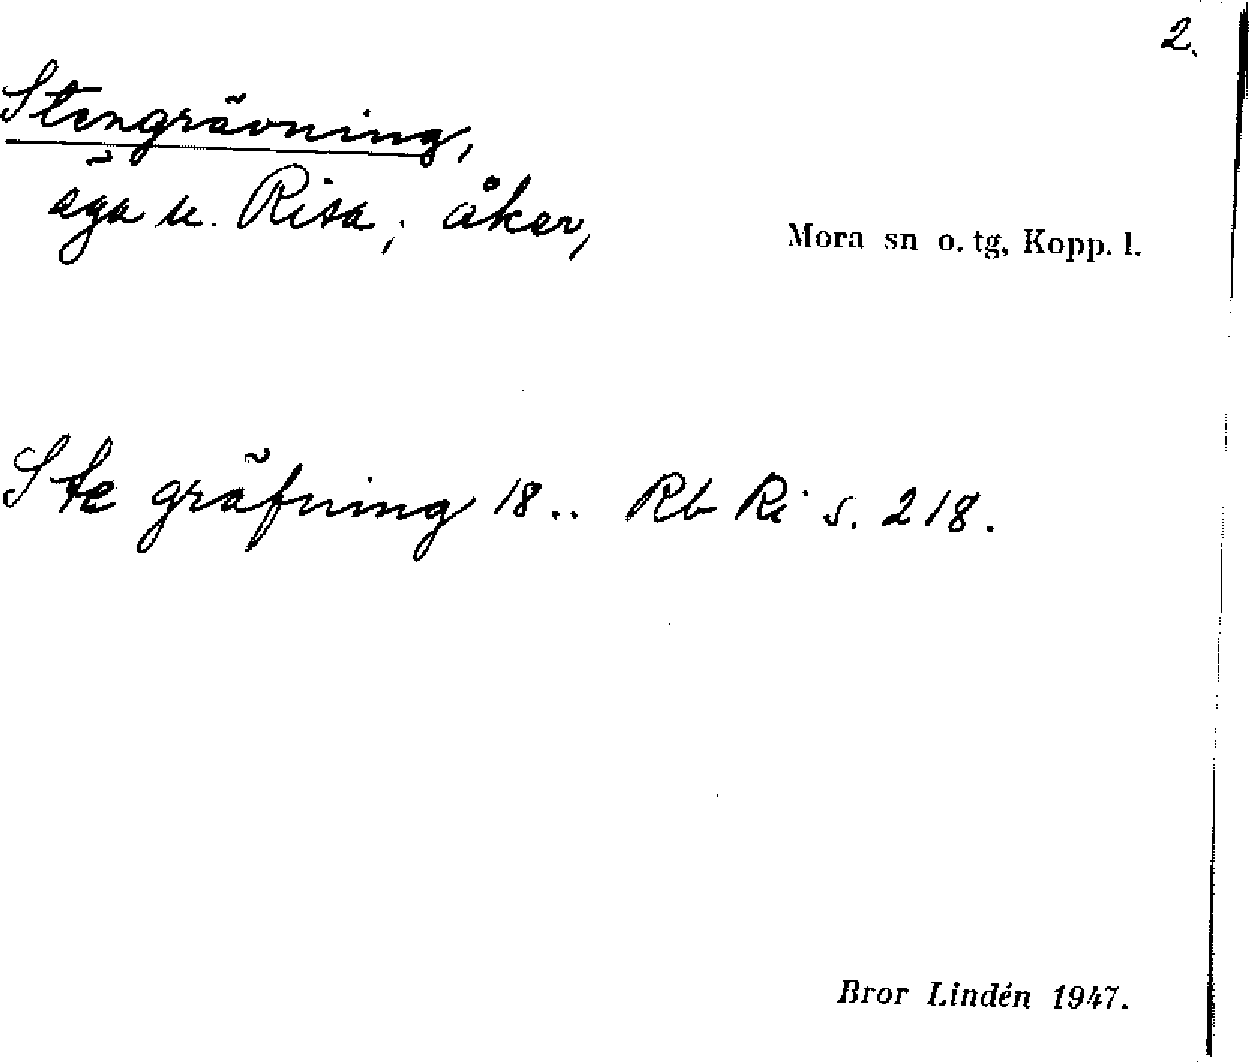 2.
Stengrävning,
äga u. Risa; åker,
Mora sn o. tg, Kopp. l.
Ste gräfning 18.. Rb Ri s. 218.
Bror Lindén 1947.